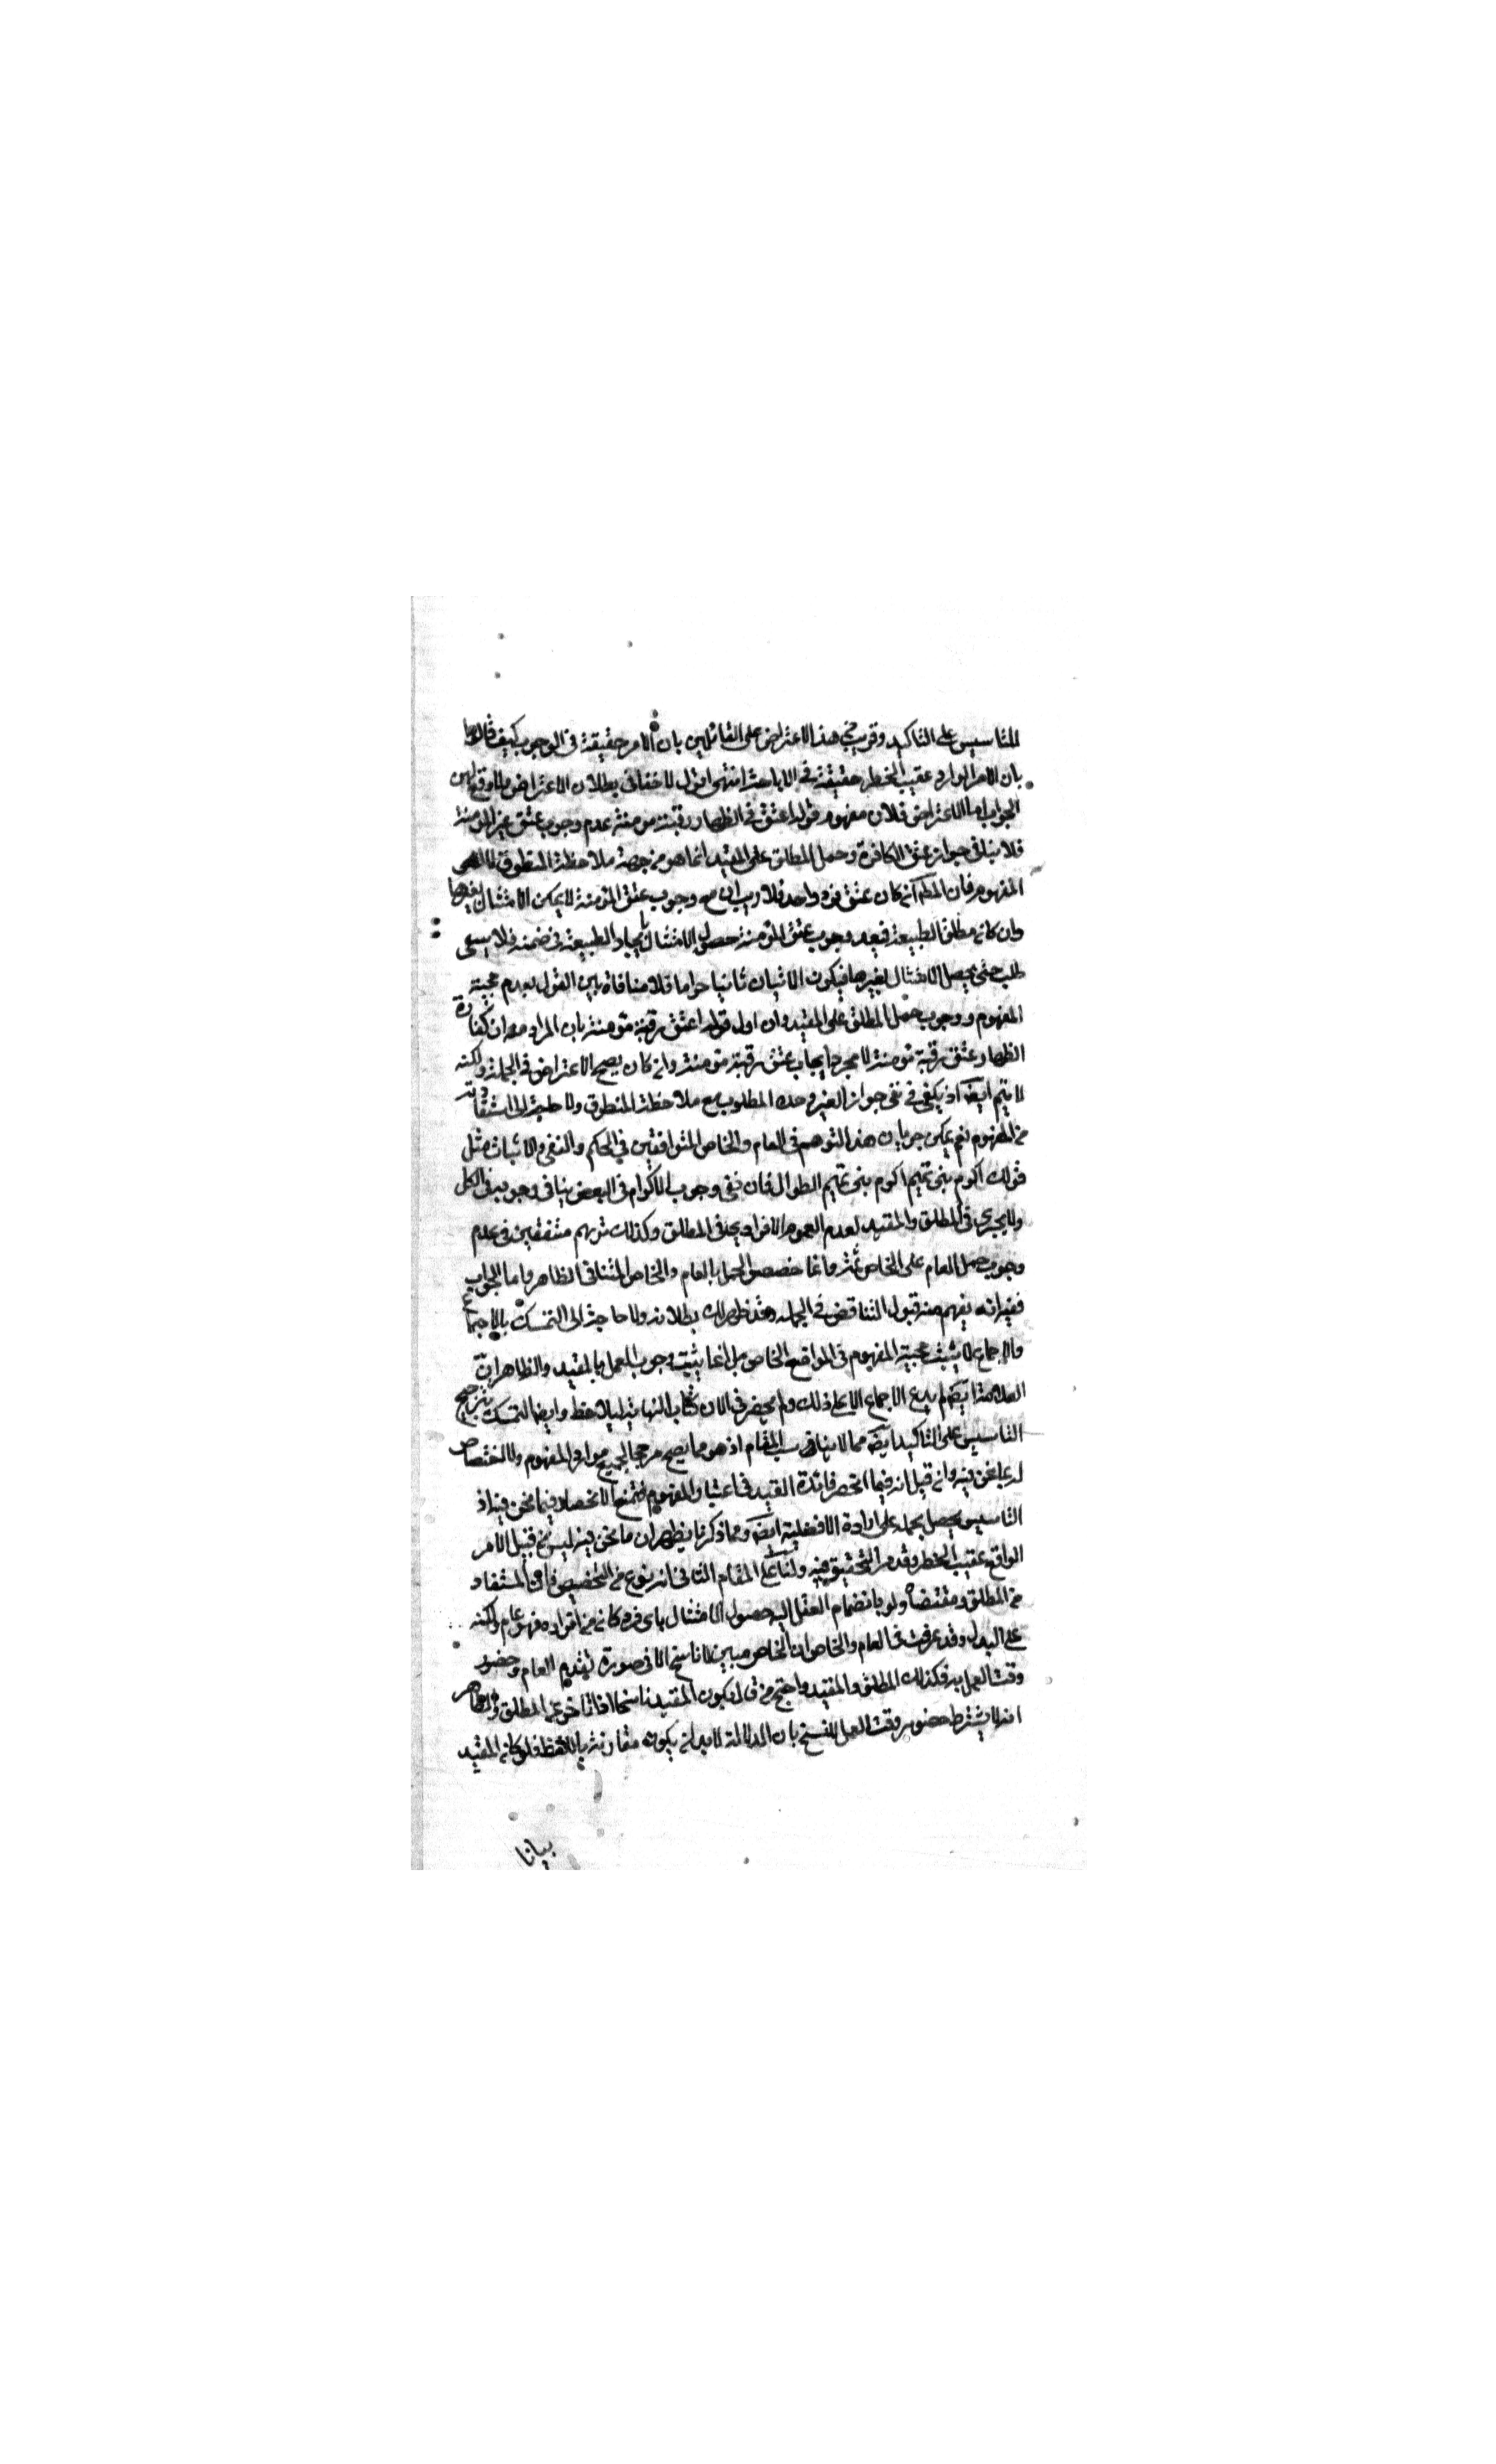 للتاسيس على التاكيد وقريب من هذا الاعتراض على القائلين بان الامر حقيقة في الوجوب كيف قالوا
بان الامر الوارد عقيب الخطر حقيقة في الاباحة انتهى اقول لا خفاء في بطلان الاعتراض ولا وقع لهن
الجواب اما الاعتراض فلان مفهوم قوله اعتق في الظهار رقبة مومنة عدم وجوب عتق غير المومنة
فلا ينافي جواز عتق الكافرة وحمل المطلق على المقيد انما هو من جهة ملاحظة المنطوق لا
المفهوم فان المط ان كان عتق فرد واحد فلا ريب ان مع وجوب عتق المؤمنة لا يمكن الامتثال بغيرها
وان كان مطلق الطبيعة فبعد وجوب عتق المؤمنة حصول الامتثال بايجاد الطبيعة في ضمنه فلا يبقى
طلب حتى يحصل الامتثال بغيرها فيكون الاتيان ثانيا حراما فلا منافاة بين القول بعدم حجية
المفهوم ووجوب حمل المطلق على المقيد وان اول قوله اعتق رقبة مؤمنة بان المراد منه ان كفارة
الظهار عتق رقبة مؤمنة لا مجرد ايجاب عتق رقبة مؤمنة وان كان يصح الاعتراض في الجملة ولكنه
لا يتم ايضا اذ يكفي في نفي جواز الغير وحدة المطلوب مع ملاحظة المنطوق ولا حاجة الى استفادته
من المفهوم نعم يمكن جريان هذا التوهم في العام والخاص المتوافقين في الحكم والنفي والاثبات مثل
قولك اكرم بني تميم اكرم بني تميم الطوال فان نفي وجوب الاكرام في البعض ينافي وجوبه في الكل
ولا يجري في المطلق والمقيد لعدم العموم الافرادي في المطلق وكذلك تريهم متفقين في عدم
وجوب حمل العام على الخاص ثمة وانما خصصوا الحمل بالعام والخاص المتنافي الظاهر واما الجواب
ففيه انه يفهم منه قبول التناقض في الجملة وقد ظهر لك بطلانه ولا حاجة الى التمسك بالاجماع
والاجماع لا يثبت حجية المفهوم في المواقع الخاص بل انما يثبت وجوب العمل بالمقيد والظاهر ان
العلامة ايضا لم يدع الاجماع الا على ذلك ولم يحضرني الان كتاب النهاية ليلاحظ وايضا التمسك بترجيح
التاسيس على التاكيد ايضا مما لا يناسب المقام اذ هو مما يصح مرجحا لجميع موارد المفهوم ولا اختصاص
له بما نحن فيه وان قيل انه فيما انحصر فائدة القيد في اعتبار المفهوم فنمنع الانحصار فيما نحن فيه اذ
التاسيس يحصل بحمله على ارادة الافضلية ايضا ومما ذكرنا يظهر ان ما نحن فيه ليس من قبيل الامر
الواقع عقيب الخطر وقد مر التحقيق فيه ولنا على المقام الثاني انه نوع من التخصيص فان المستفاد
من المطلق ومقتضاه ولو بانضمام العقل اليه حصول الامتثال باي فرد كان من افراده فهو عام ولكنه
على البدل وقد عرفت في العام والخاص ان الخاص مبين لا ناسخ الا في صورة تقديم العام وحضور
وقت العمل به فكذلك المطلق والمقيد واحتج من قال بكون المقيد ناسخا اذا تاخر عن المطلق والظاهر
انه لا يشترط حضور وقت العمل للنسخ بان الدلالة لابد ان يكون مقارنة باللفظ فلو كان المقيد
بيانا